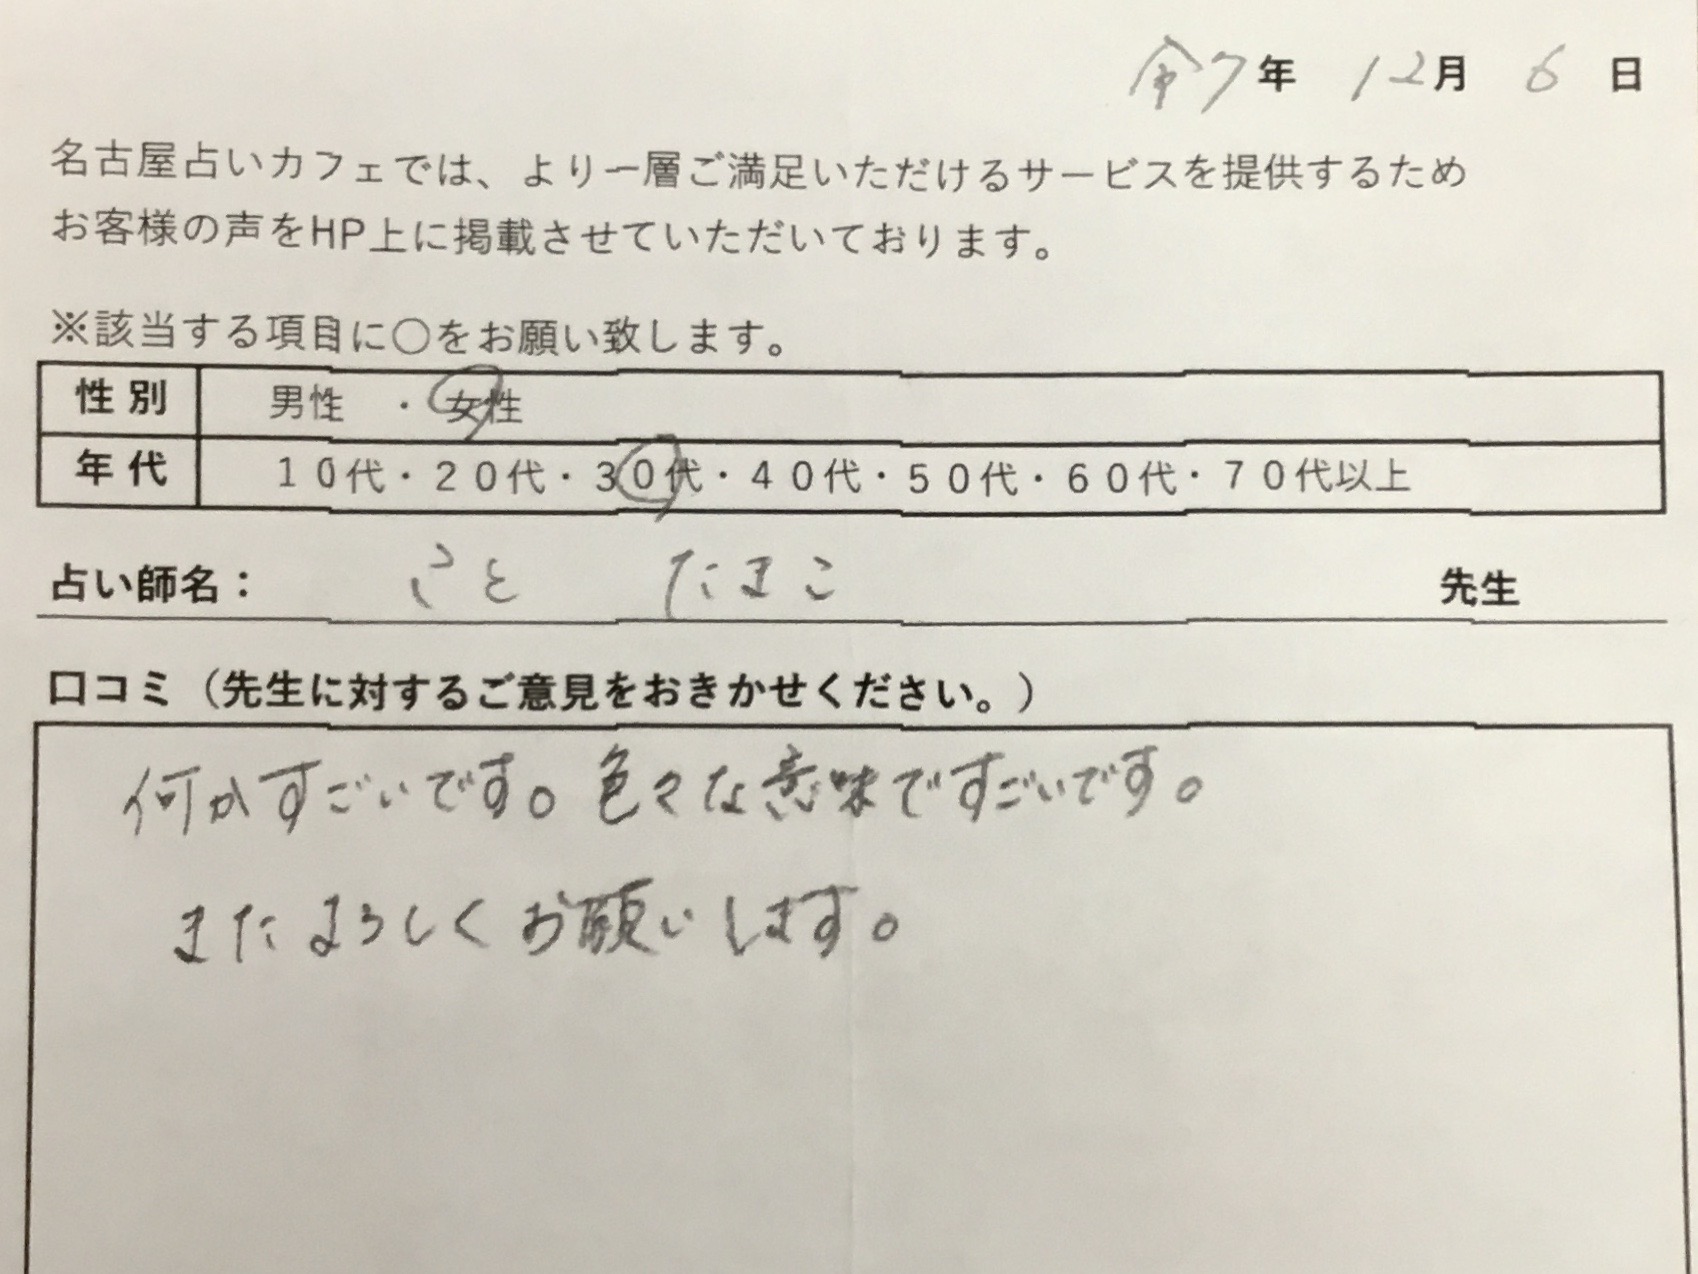 令7年 12月 6日
名古屋占いカフェでは、より一層ご満足いただけるサービスを提供するため
お客様の声をHP上に掲載させていただいております。
※該当する項目に○をお願い致します。
性別 男性 ・ 女性
年代 10代・20代・30代・40代・50代・60代・70代以上
占い師名： さと たまこ 先生
口コミ（先生に対するご意見をおきかせください。）
何かすごいです。色々な意味ですごいです。
またよろしくお願いします。